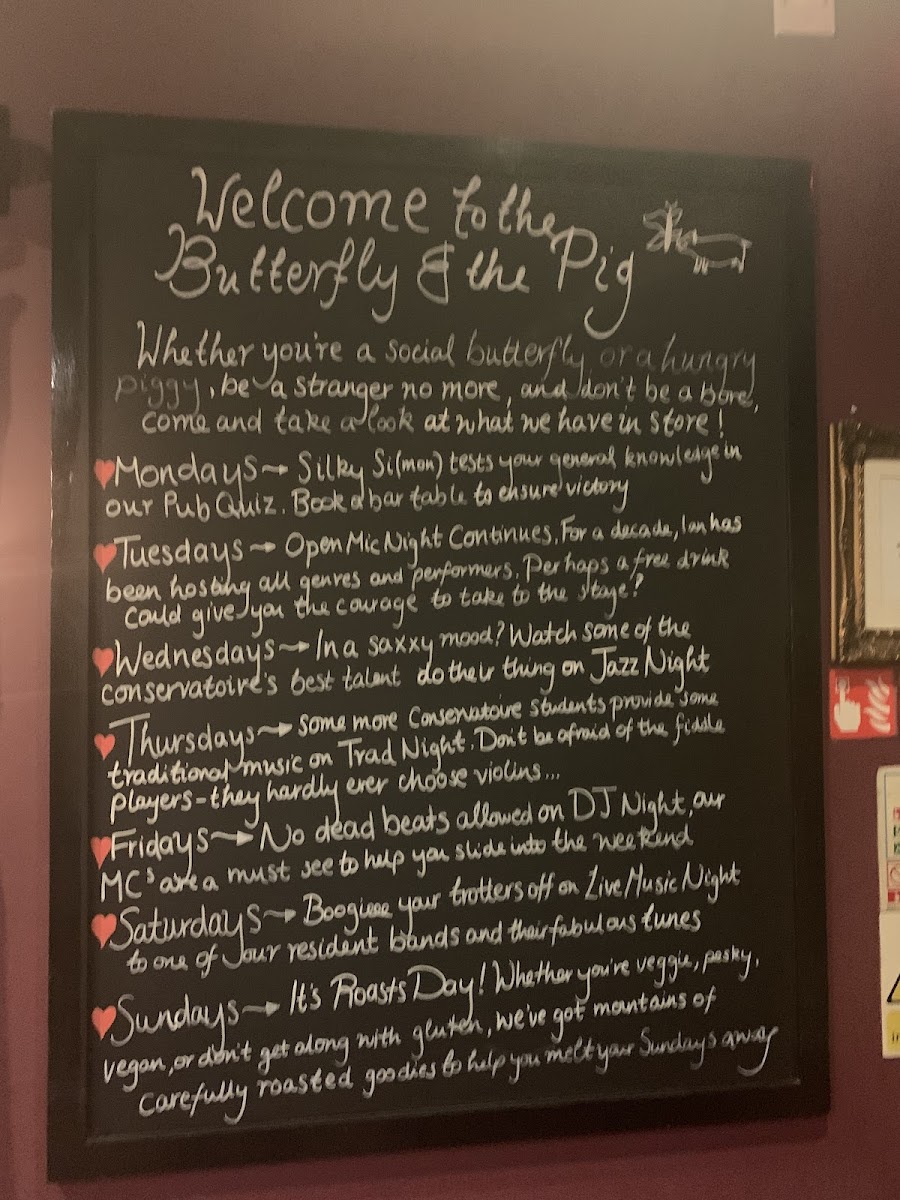 Welcome to the
Butterfly & the Pig
Whether you're a social butterfly or a hungry
piggy, be a stranger no more, and don't be a bore,
come and take a look at what we have in store!
Mondays → Silky Si(mon) tests your general knowledge in
our Pub Quiz. Book a bar table to ensure victory
Tuesdays → Open Mic Night Continues. For a decade, Ian has
been hosting all genres and performers. Perhaps a free drink
could give you the courage to take to the stage?
Wednesdays → In a saxxy mood? Watch some of the
conservatoire's best talent do their thing on Jazz Night
Thursdays → some more Conservatoire students provide some
traditional music on Trad Night. Don't be afraid of the fiddle
players - they hardly ever choose violins...
Fridays → No dead beats allowed on DJ Night, our
MCs are a must see to help you slide into the weekend
Saturdays → Boogieee your trotters off on Live Music Night
to one of our resident bands and their fabulous tunes
Sundays → It's Roasts Day! Whether you're veggie, pesky,
vegan, or don't get along with gluten, we've got mountains of
carefully roasted goodies to help you melt your Sundays away